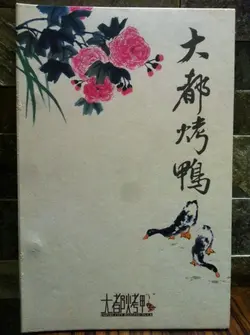 大都烤鴨
大都烤鸭